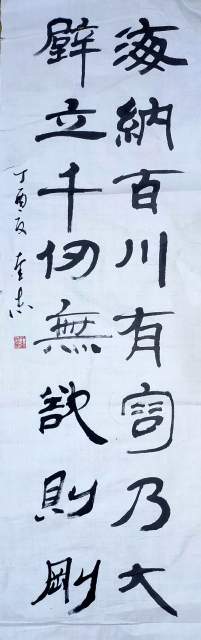 海納百川有容乃大
壁立千仞無欲則剛
丁酉夏